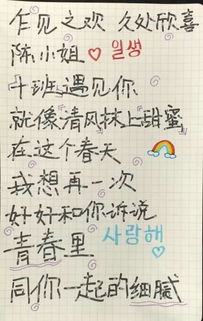 乍见之欢 久处欣喜
陈小姐 일생
十班遇见你
就像清风抹上甜蜜
在这个春天
我想再一次
好好和你诉说
青春里 사랑해
同你一起的细腻